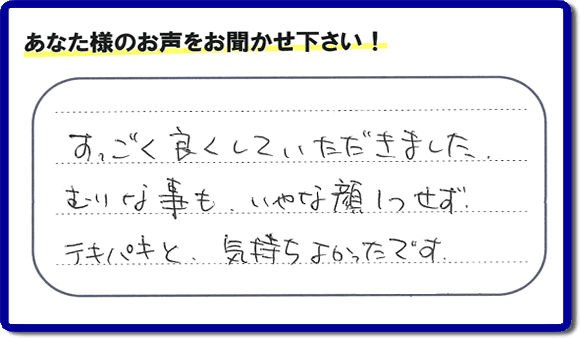 あなた様のお声をお聞かせ下さい！
すっごく良くしていただきました、
むりな事も、いやな顔1つせず、
テキパキと、気持ちよかったです。